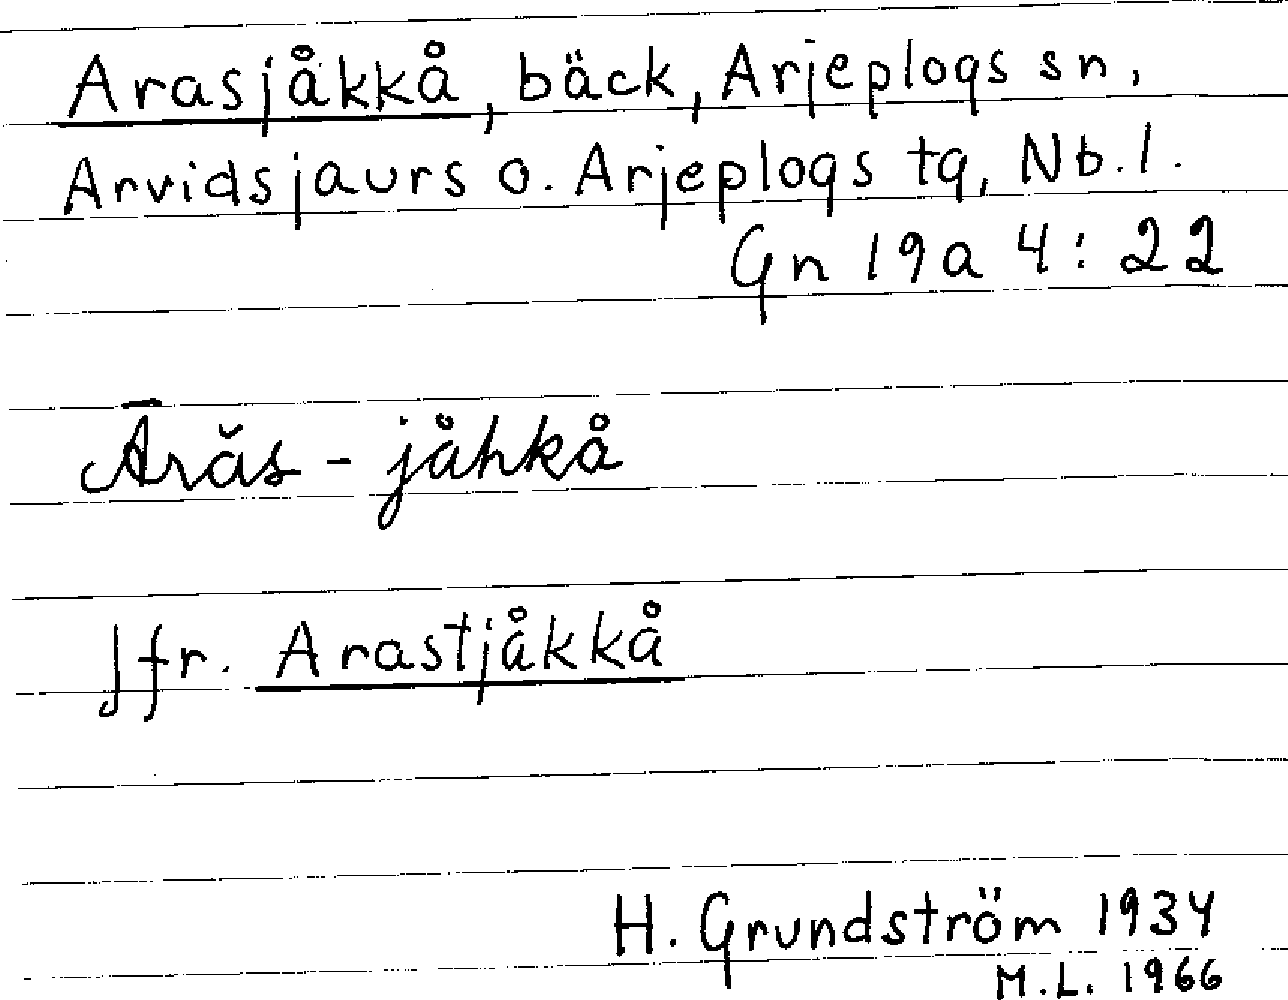 Arasjåkkå, bäck, Arjeplogs sn,
Arvidsjaurs o. Arjeplogs tg, Nb. l.
Gn 19a 4:22
Ārăs - jåhkå
Jfr. Arastjåkkå
H. Grundström 1934
M.L. 1966